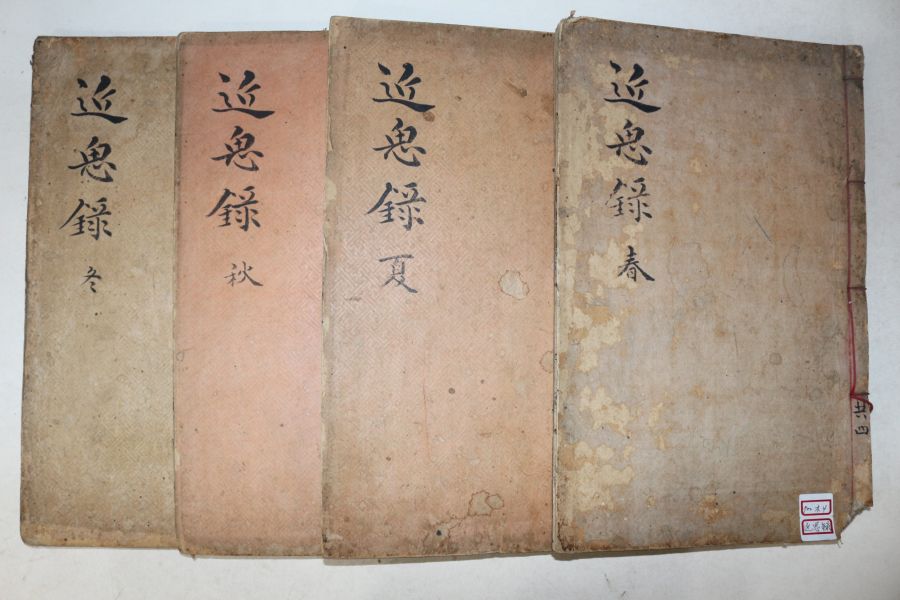 近思錄 春
共四
近思錄
近思錄 夏
近思錄 秋
近思錄 冬